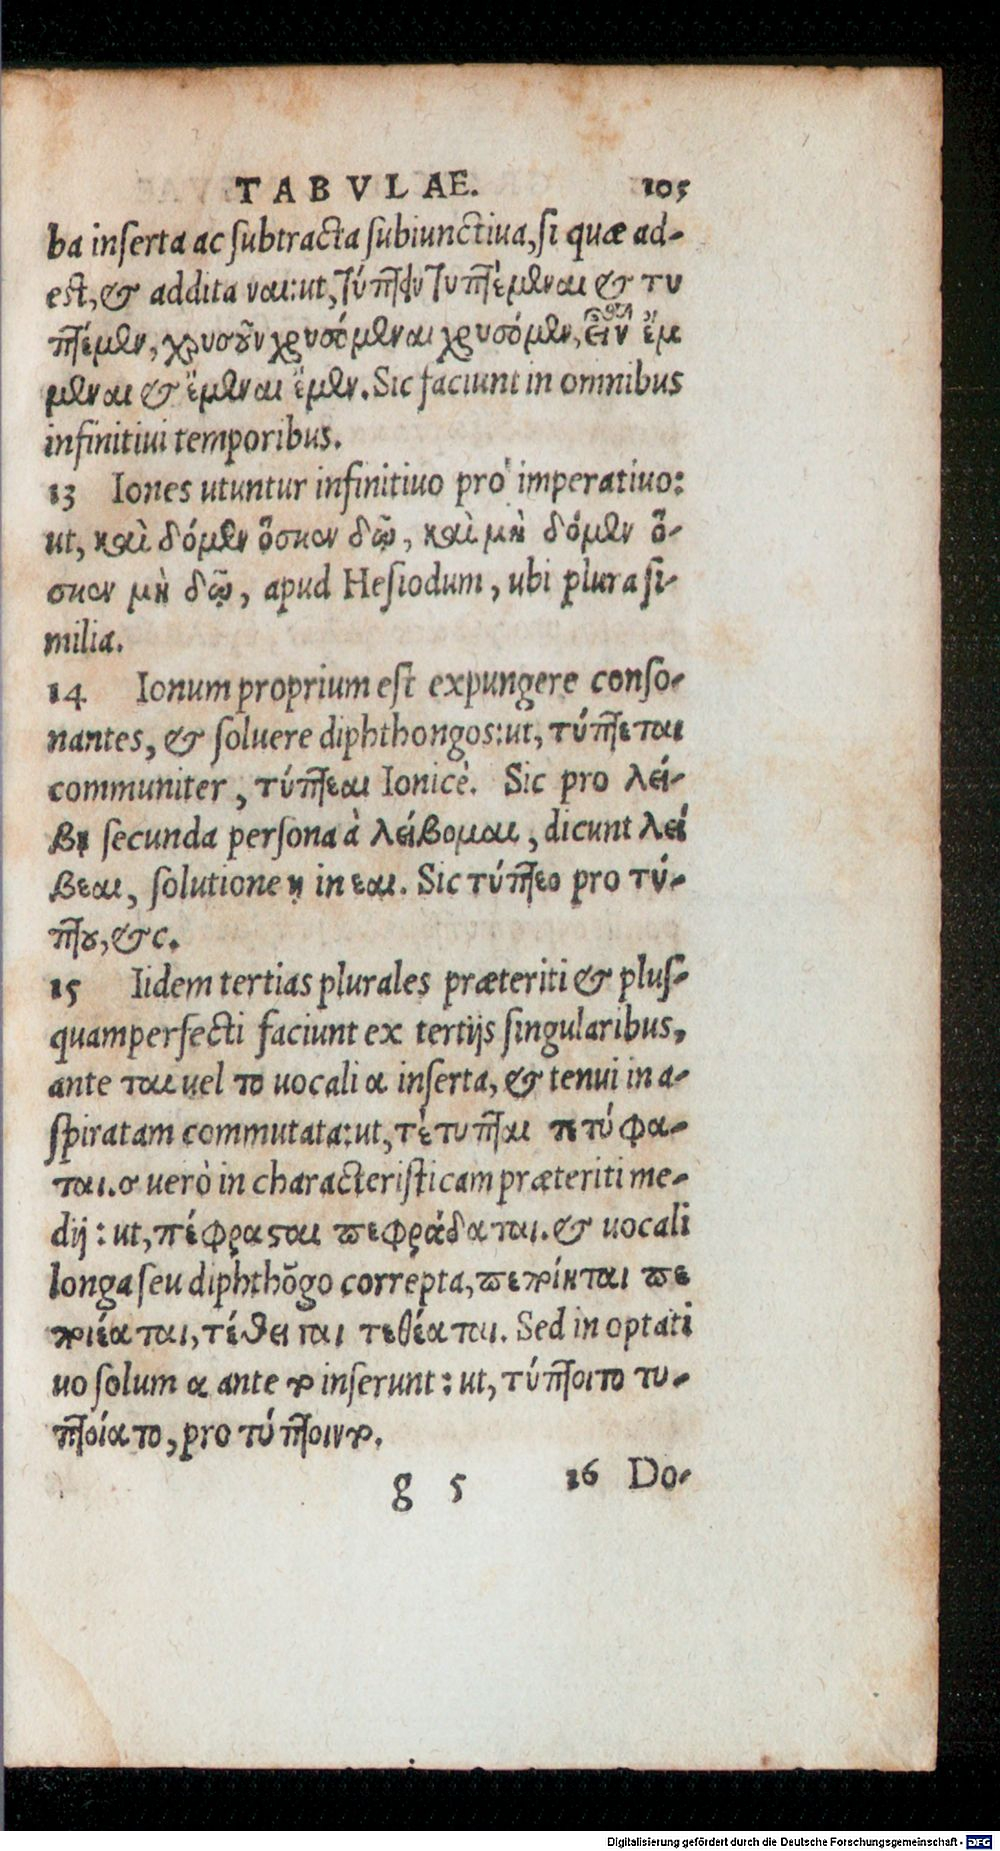 TABVLAE. 105
ba inserta ac subtracta subiunctiua, si quæ ad-
est, & addita ναι: ut, τύπτειν τυπτέμεναι & τυ
πτέμεν, χρυσοῦν χρυσόμεναι χρυσόμεν, ἔμ
μεναι & ἔμεναι ἔμεν. Sic faciunt in omnibus
infinitiui temporibus.
13 Iones utuntur infinitiuo pro imperatiuo:
ut, καὶ δόμεν ὅσκεν δῷ, καὶ μὴ δόμεν ὅ-
σκεν μὴ δῷ, apud Hesiodum, ubi plura si-
milia.
14 Ionum proprium est expungere conso-
nantes, & soluere diphthongos: ut, τύπτεται
communiter, τύπτεαι Ionicè. Sic pro λεί-
βῃ secunda persona à λείβομαι, dicunt λεί
βεαι, solutione ῃ in εαι. Sic τύπτεο pro τύ-
πτου, &c.
15 Iidem tertias plurales præteriti & plus-
quamperfecti faciunt ex tertijs singularibus,
ante ται uel το uocali α inserta, & tenui in a-
spiratam commutata: ut, τέτυπται τετύφα-
ται. σ uerò in characteristicam præteriti me-
dij: ut, πέφρασται πεφράδαται. & uocali
longa seu diphthõgo correpta,
τέθειται τεθέαται. Sed in optati
uo solum α ante το inserunt: ut, τύπτοιτο τυ-
πτοίατο, pro τύπτοιντο.
g 5 16 Do-
Digitalisierung gefördert durch die Deutsche Forschungsgemeinschaft - DFG